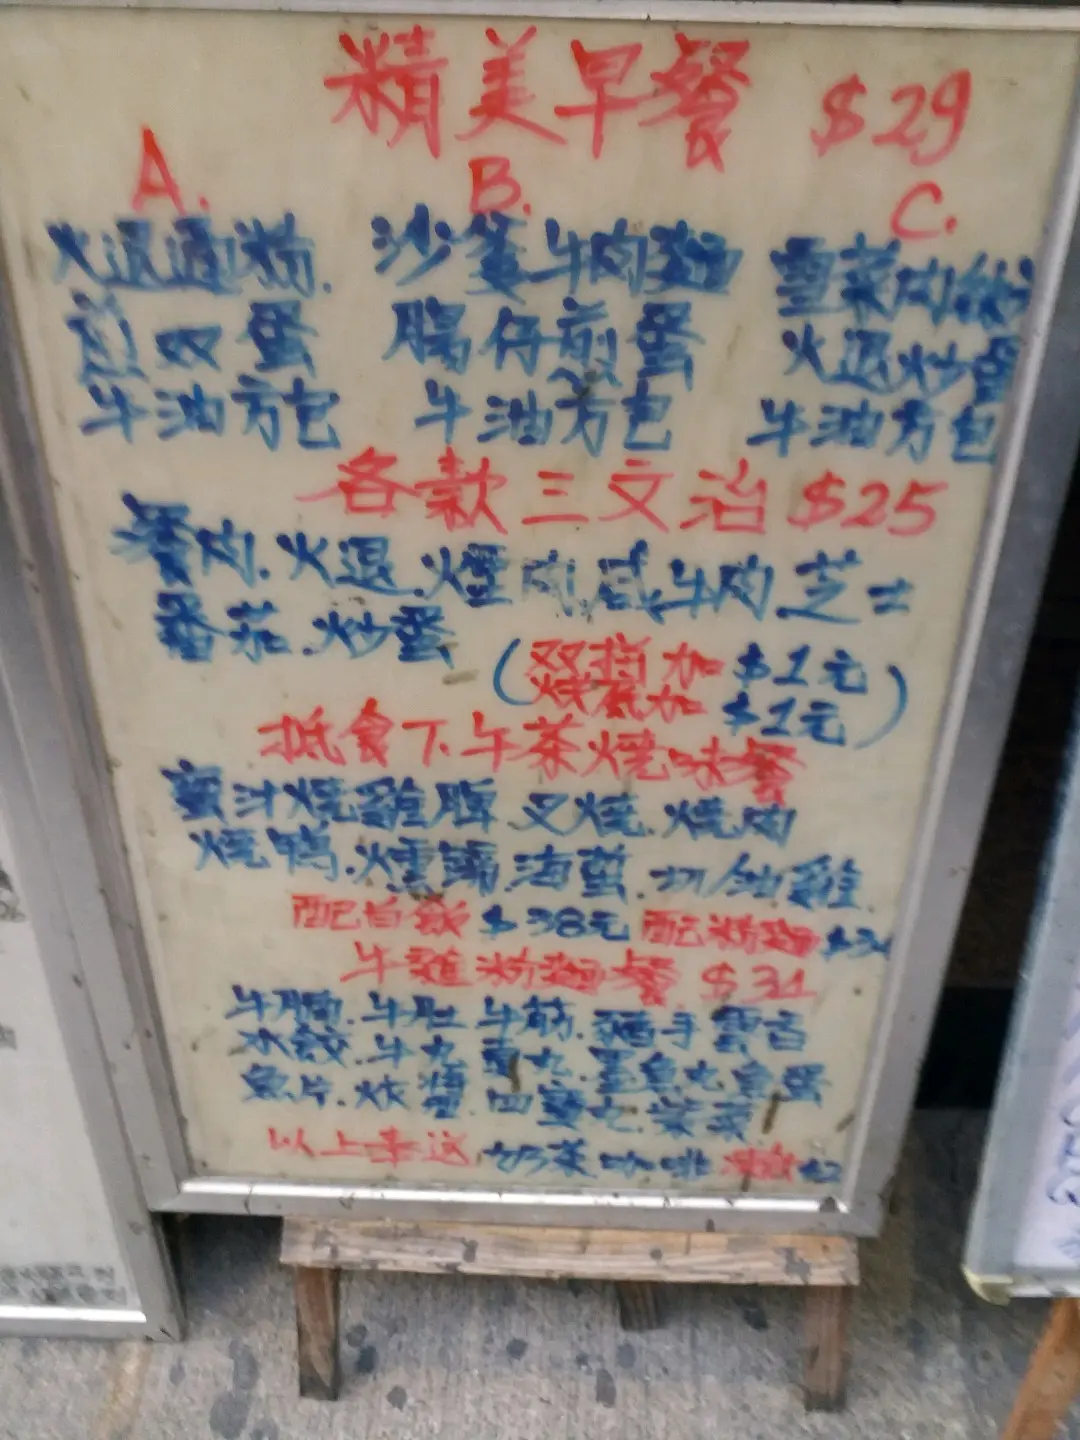 精美早餐 $29
A. B. C.
火退通粉. 沙爹牛肉麵 雪菜肉絲
煎双蛋 腸仔煎蛋 火退炒蛋
牛油方包 牛油方包 牛油方包
各款三文治 $25
餐肉.火退.煙肉.咸牛肉 芝士
番茄.炒蛋
(双拼加 $1元
烘底加 $1元)
抵食下午茶燒味餐
蜜汁燒雞脾 叉燒.燒肉
燒鴨.燻蹄.海蜇.切油雞.
配白飯 $38元 配粉麵
牛雜粉麵餐 $31
牛腩.牛肚.牛筋.豬手 雲吞
水餃.牛丸 墨魚丸 魚蛋
魚片.炸醬.紫菜
以上奉送 奶茶 咖啡